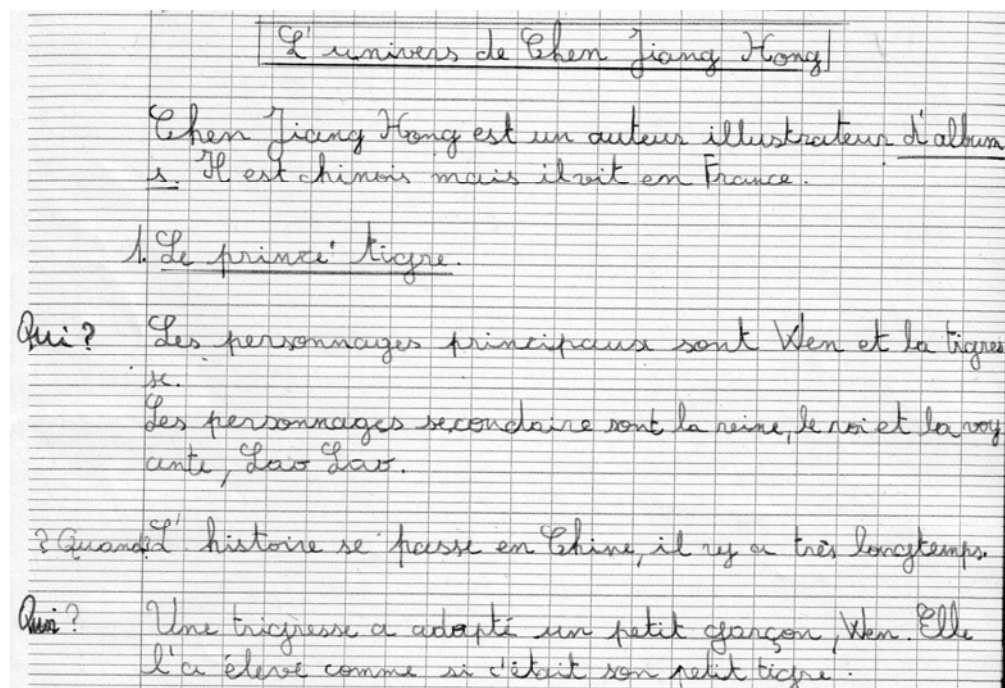 L'univers de Chen Jiang Hong
Chen Jiang Hong est un auteur illustrateur d'album
s. Il est chinois mais il vit en France.
1. Le prince tigre.
Qui? Les personnages principaux sont Wen et la tigres
se.
Les personnages secondaire sont la reine, le roi et la voy
ante, Lao Lao.
? Quand? L'histoire se passe en Chine, il y a très longtemps.
Quoi? Une trigresse a adopté un petit garçon, Wen. Elle
l'a élevé comme si c'était son petit tigre.